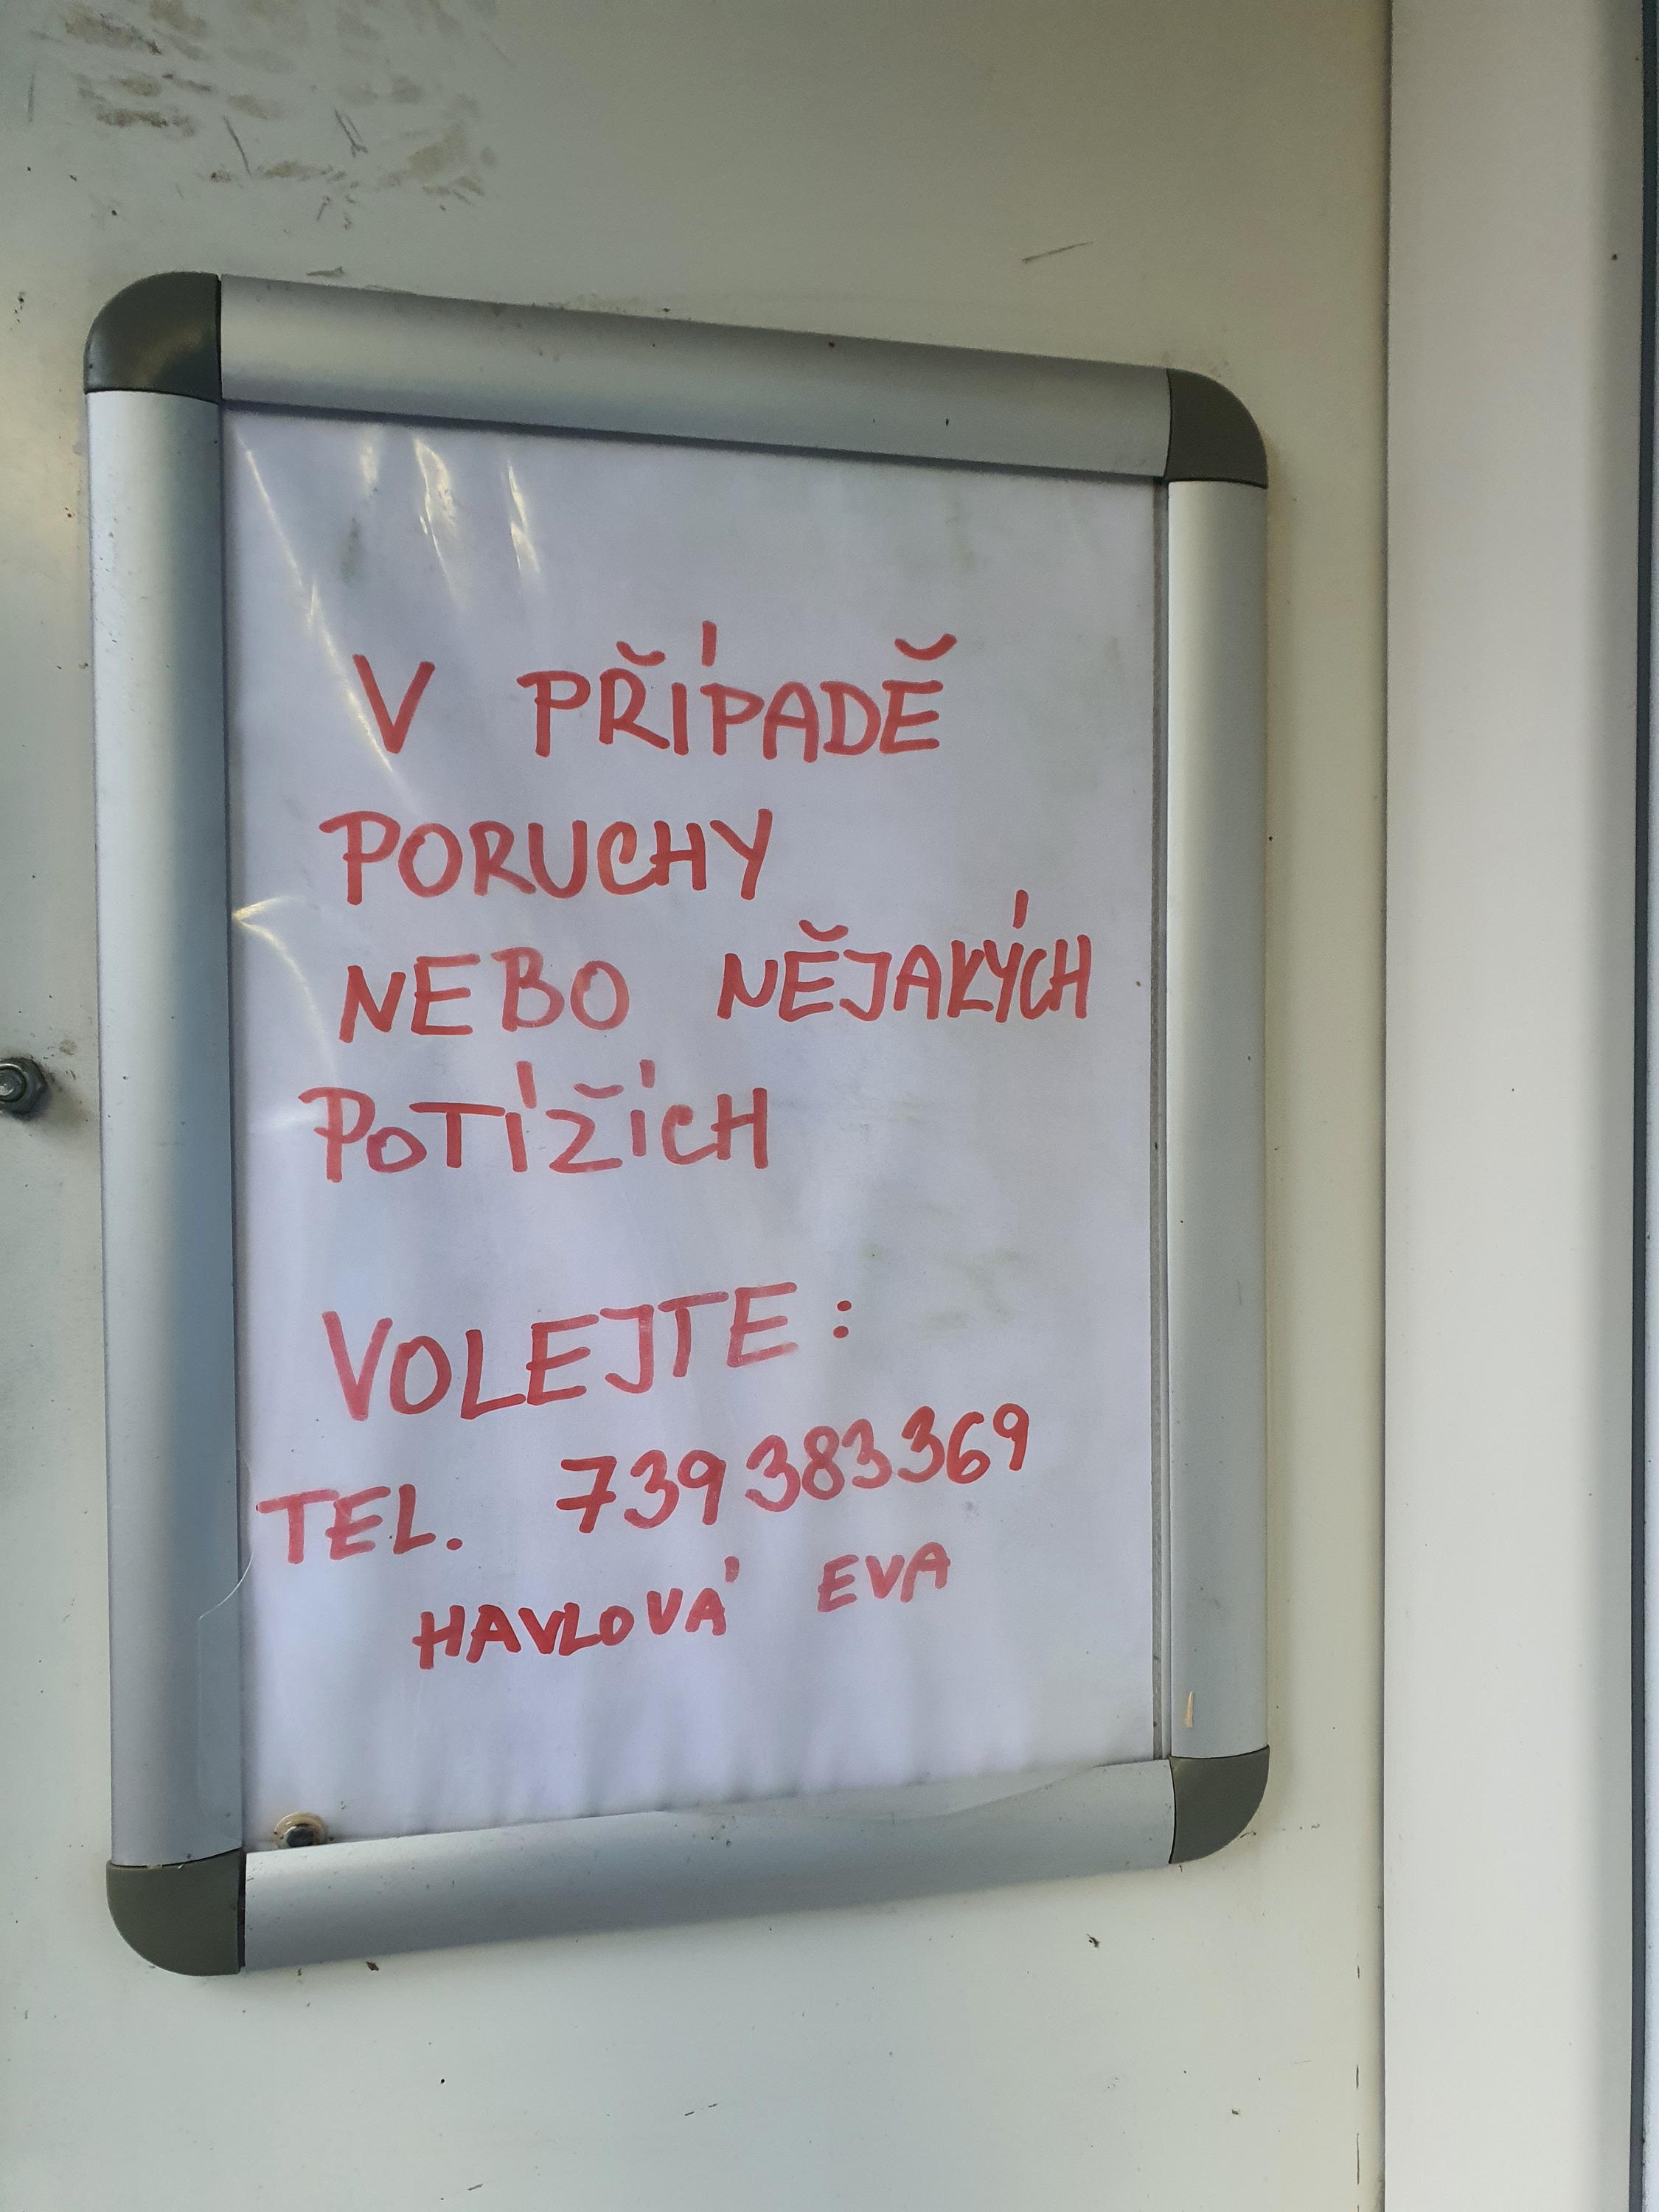 V PŘÍPADĚ
PORUCHY
NEBO NĚJAKÝCH
POTÍŽÍCH
VOLEJTE:
TEL. 739383369
HAVLOVÁ EVA